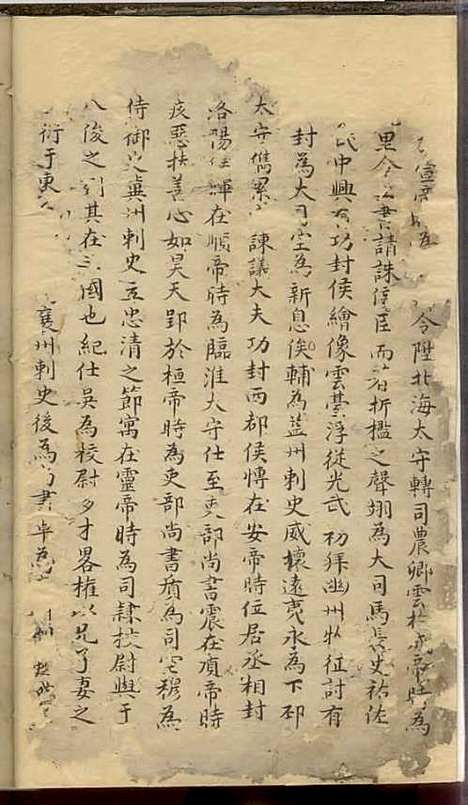 宣帝 令陞北海太守轉司農卿雲於成帝時為
里令上書請誅侫臣而著折檻之聲翊為大司馬長史祐佐
氏中興有功封侯繪像雲臺浮從光武初拜幽州牧征討有
封為大司空為新息侯輔為益州刺史威懷遠夷永為下邳
太守儁累 諫議大夫功封西都侯慱在安帝時位居丞相封
洛陽 暉在順帝時為臨淮大守仕至吏部尚書震在順帝時
疾惡扶善心如昊天郢於桓帝時為吏部尚書頊為司空穆為
侍御史兾州刺史立忠清之節寓在靈帝時為司隸挍尉與于
八俊之列其在三國也紀仕吳為校尉多才畧權以兄子妻之
衍于東 襄州刺史後為尚書卓為